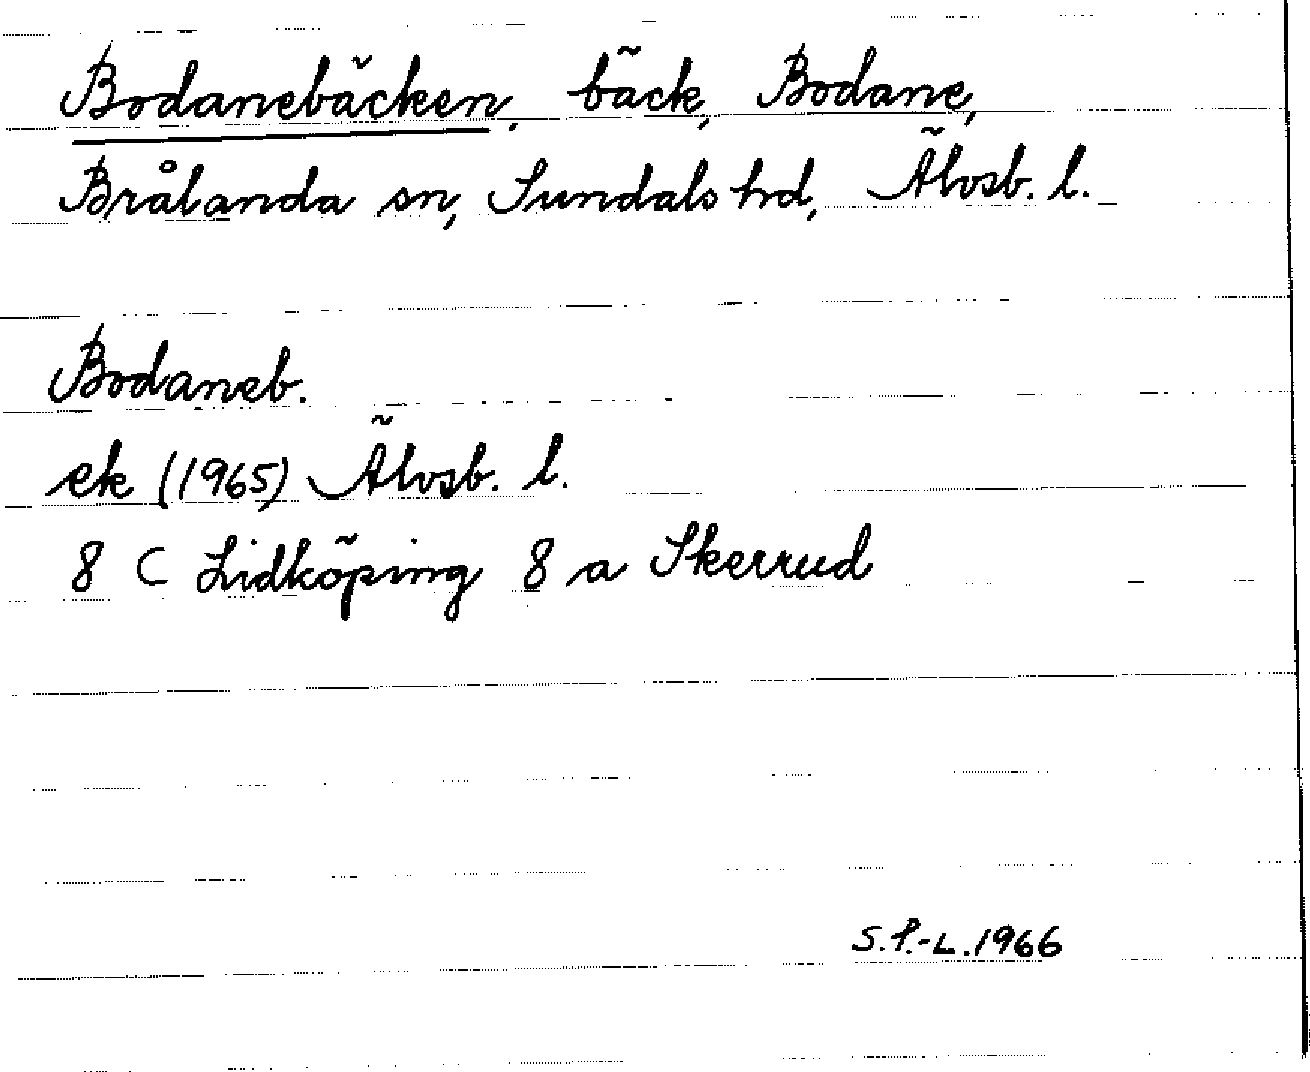 Bodanebäcken, bäck, Bodane,
Brålanda sn, Sundals hd, Älvsb. l.
Bodaneb.
ek (1965) Älvsb. l.
8 C Lidköping 8 a Skerrud
S.P.-L. 1966